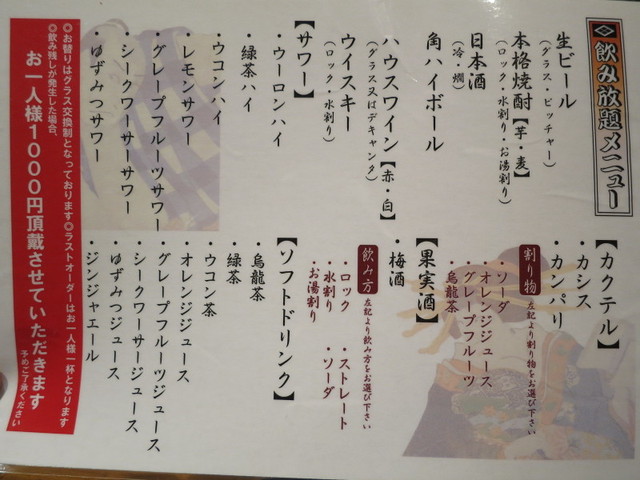 飲み放題メニュー
生ビール
（グラス・ピッチャー）
本格焼酎【芋・麦】
（ロック・水割り・お湯割り）
日本酒
（冷・燗）
角ハイボール
ハウスワイン【赤・白】
（グラス又はデキャンタ）
ウイスキー
（ロック・水割り）
【サワー】
・ウーロンハイ
・緑茶ハイ
・ウコンハイ
・レモンサワー
・グレープフルーツサワー
・シークワーサーサワー
・ゆずみつサワー
【カクテル】
・カシス
・カンパリ
割り物 左記より割り物をお選び下さい
・ソーダ
・オレンジジュース
・グレープフルーツ
・烏龍茶
【果実酒】
・梅酒
飲み方 左記より飲み方をお選び下さい
・ロック ・ストレート
・水割り ・ソーダ
・お湯割り
【ソフトドリンク】
・烏龍茶
・緑茶
・ウコン茶
・オレンジジュース
・グレープフルーツジュース
・シークワーサージュース
・ゆずみつジュース
・ジンジャエール
◎お替りはグラス交換制となっております◎ラストオーダーはお一人様一杯となります
◎飲み残しが発生した場合、
お一人様1000円頂戴させていただきます
予めご了承ください